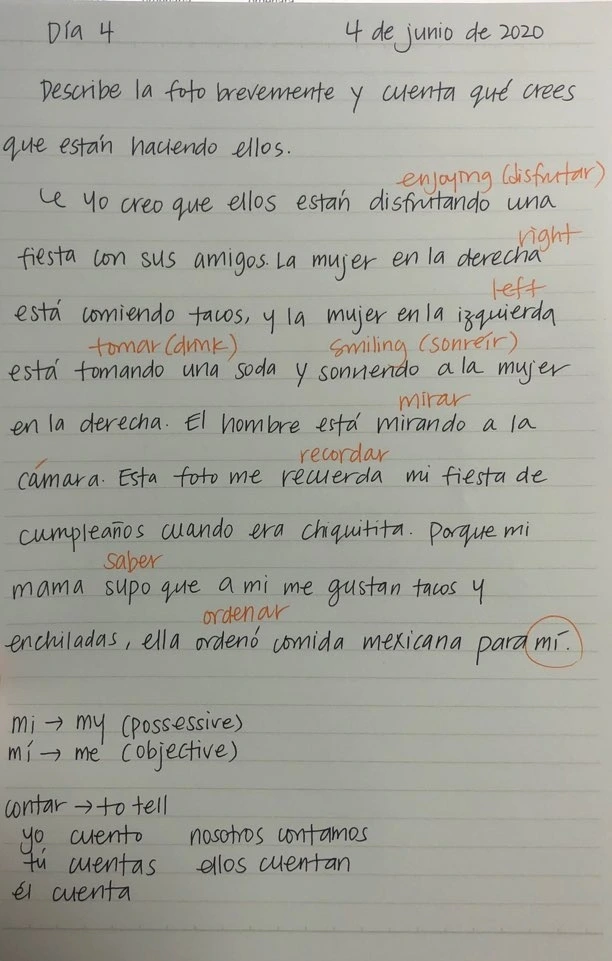 Día 4 4 de junio de 2020
Describe la foto brevemente y cuenta qué crees
que están haciendo ellos.
enjoying (disfrutar)
yo creo que ellos están disfrutando una
right
fiesta con sus amigos. La mujer en la derecha
left
está comiendo tacos, y la mujer en la izquierda
tomar (drink) smiling (sonreír)
está tomando una soda y sonriendo a la mujer
mirar
en la derecha. El hombre está mirando a la
recordar
cámara. Esta foto me recuerda mi fiesta de
cumpleaños cuando era chiquitita. Porque mi
saber
mama supo que a mi me gustan tacos y
ordenar
enchiladas, ella ordenó comida mexicana para mí.
mi → my (possessive)
mí → me (objective)
contar → to tell
yo cuento nosotros contamos
tú cuentas ellos cuentan
él cuenta